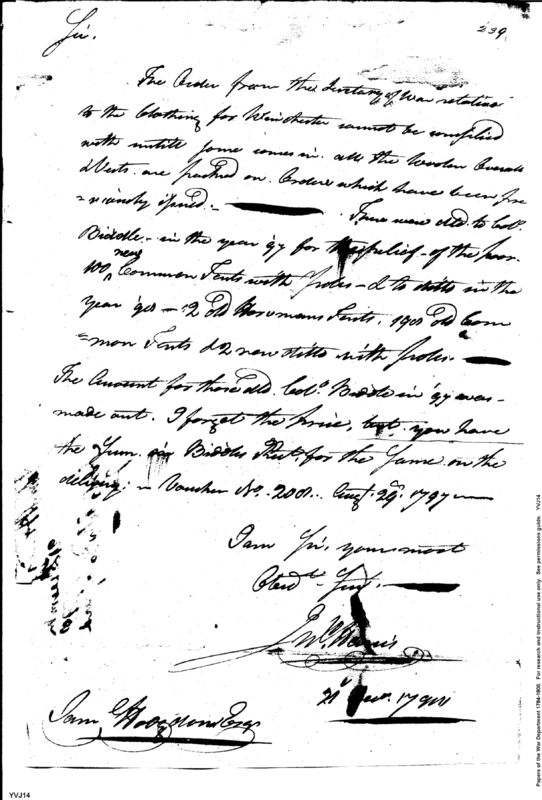 239.
Sir.
The Order from the Secretary of War relative
to the Clothing for Winchester cannot be complied
with untill some comes in. all the Woolen Overalls
& Vests are packed on Orders which have been pre
=viously issued. — There were dld to Col.
Biddle - in the year 97 for the relief - of the poor.
100 new Common Tents with Poles - & to ditto in the
year '98 - 2 Old Horsemans Tents, 190 old Com
=mon Tents & 2 new ditto with Poles.
The Amount for those dld. Colo. Biddle in 97 was
made out. I forget the Price, but you have
the Sum in Biddles Rect. for the Same on the
delivery - Voucher No. 200. Augt. 29. 1797
I am Sir, your most
Obedt. Ser
Jno. Harris
21 1798
Saml Hodgdon Esqr
YVJ14
Papers of the War Department 1784-1800. For research and instructional use only. See permissions guide. YVJ14